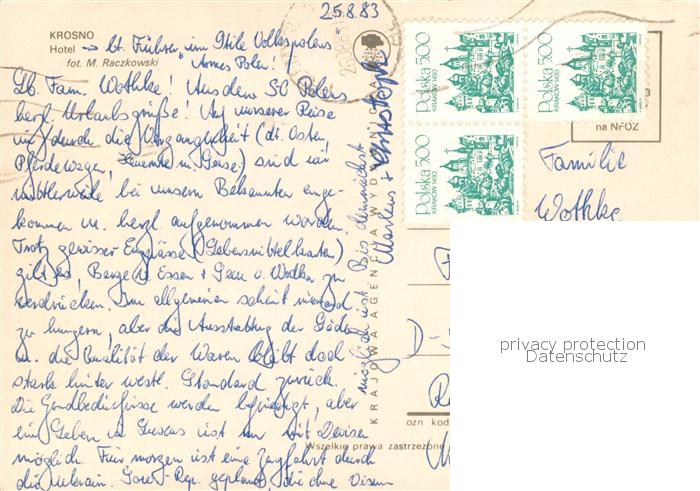 25.8.83
KROSNO
Hotel → lt. Führer "im Stile Volkspolens"
fot. M. Raczkowski "Armes Polen!"
Lb. Fam. Wothke! Aus dem SO Polens
herzl. Urlaubsgrüße! Auf unserer Reise
durch die Vergangenheit (dt. Osten,
Pferdewagen, m. Gänse) sind wir
mittlerweile bei unseren Bekannten ange-
kommen u. herzl. aufgenommen worden.
Trotz gewisser Engpässe (Lebensmittelkarten)
gilt es, Berge v. Essen + Seen v. Wodka zu
verdrücken. Im allgemeinen scheint niemand
zu hungern, aber die Ausstattung der Läden
u. die Qualität der Waren bleibt doch
stark hinter westl. Standard zurück.
Die Grundbedürfnisse werden befriedigt, aber
ein Leben in Luxus ist nur mit Devisen
möglich. Für morgen ist eine Zugfahrt durch
die Ukrain. Sowj.-Rep. geplant, die ohne Visum
möglich ist. Bis demnächst
Markus + Christoph
KRAJOWA AGENCJA WYDAWNICZA
Polska 5.00
KRAKÓW 1493
Polska 5.00
KRAKÓW 1493
Polska 5.00
KRAKÓW 1493
na NFOZ
Familie
Wothke
D-
ozn kod
Wszelkie prawa zastrzeżone
privacy protection
Datenschutz